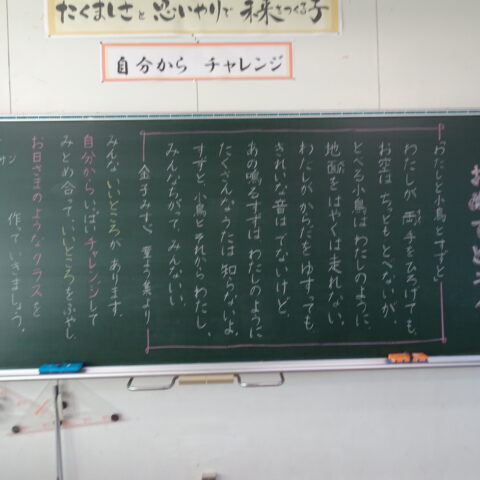 たくましさと思いやりで未来をつくる子
自分から チャレンジ
おめでとう
わたしと小鳥とすずと
わたしが両手をひろげても、
お空はちっともとべないが、
とべる小鳥はわたしのように、
地面をはやくは走れない。
わたしがからだをゆすっても
きれいな音はでないけど、
あの鳴るすずはわたしのように
たくさんなうたは知らないよ。
すずと、小鳥とそれからわたし、
みんなちがって、みんないい。
金子みすゞ 童よう集より
みんな、いいところがあります。
自分からいっぱいチャレンジして
みとめ合って、いいところをふやし
お日さまのようなクラスを
作っていきましょう。